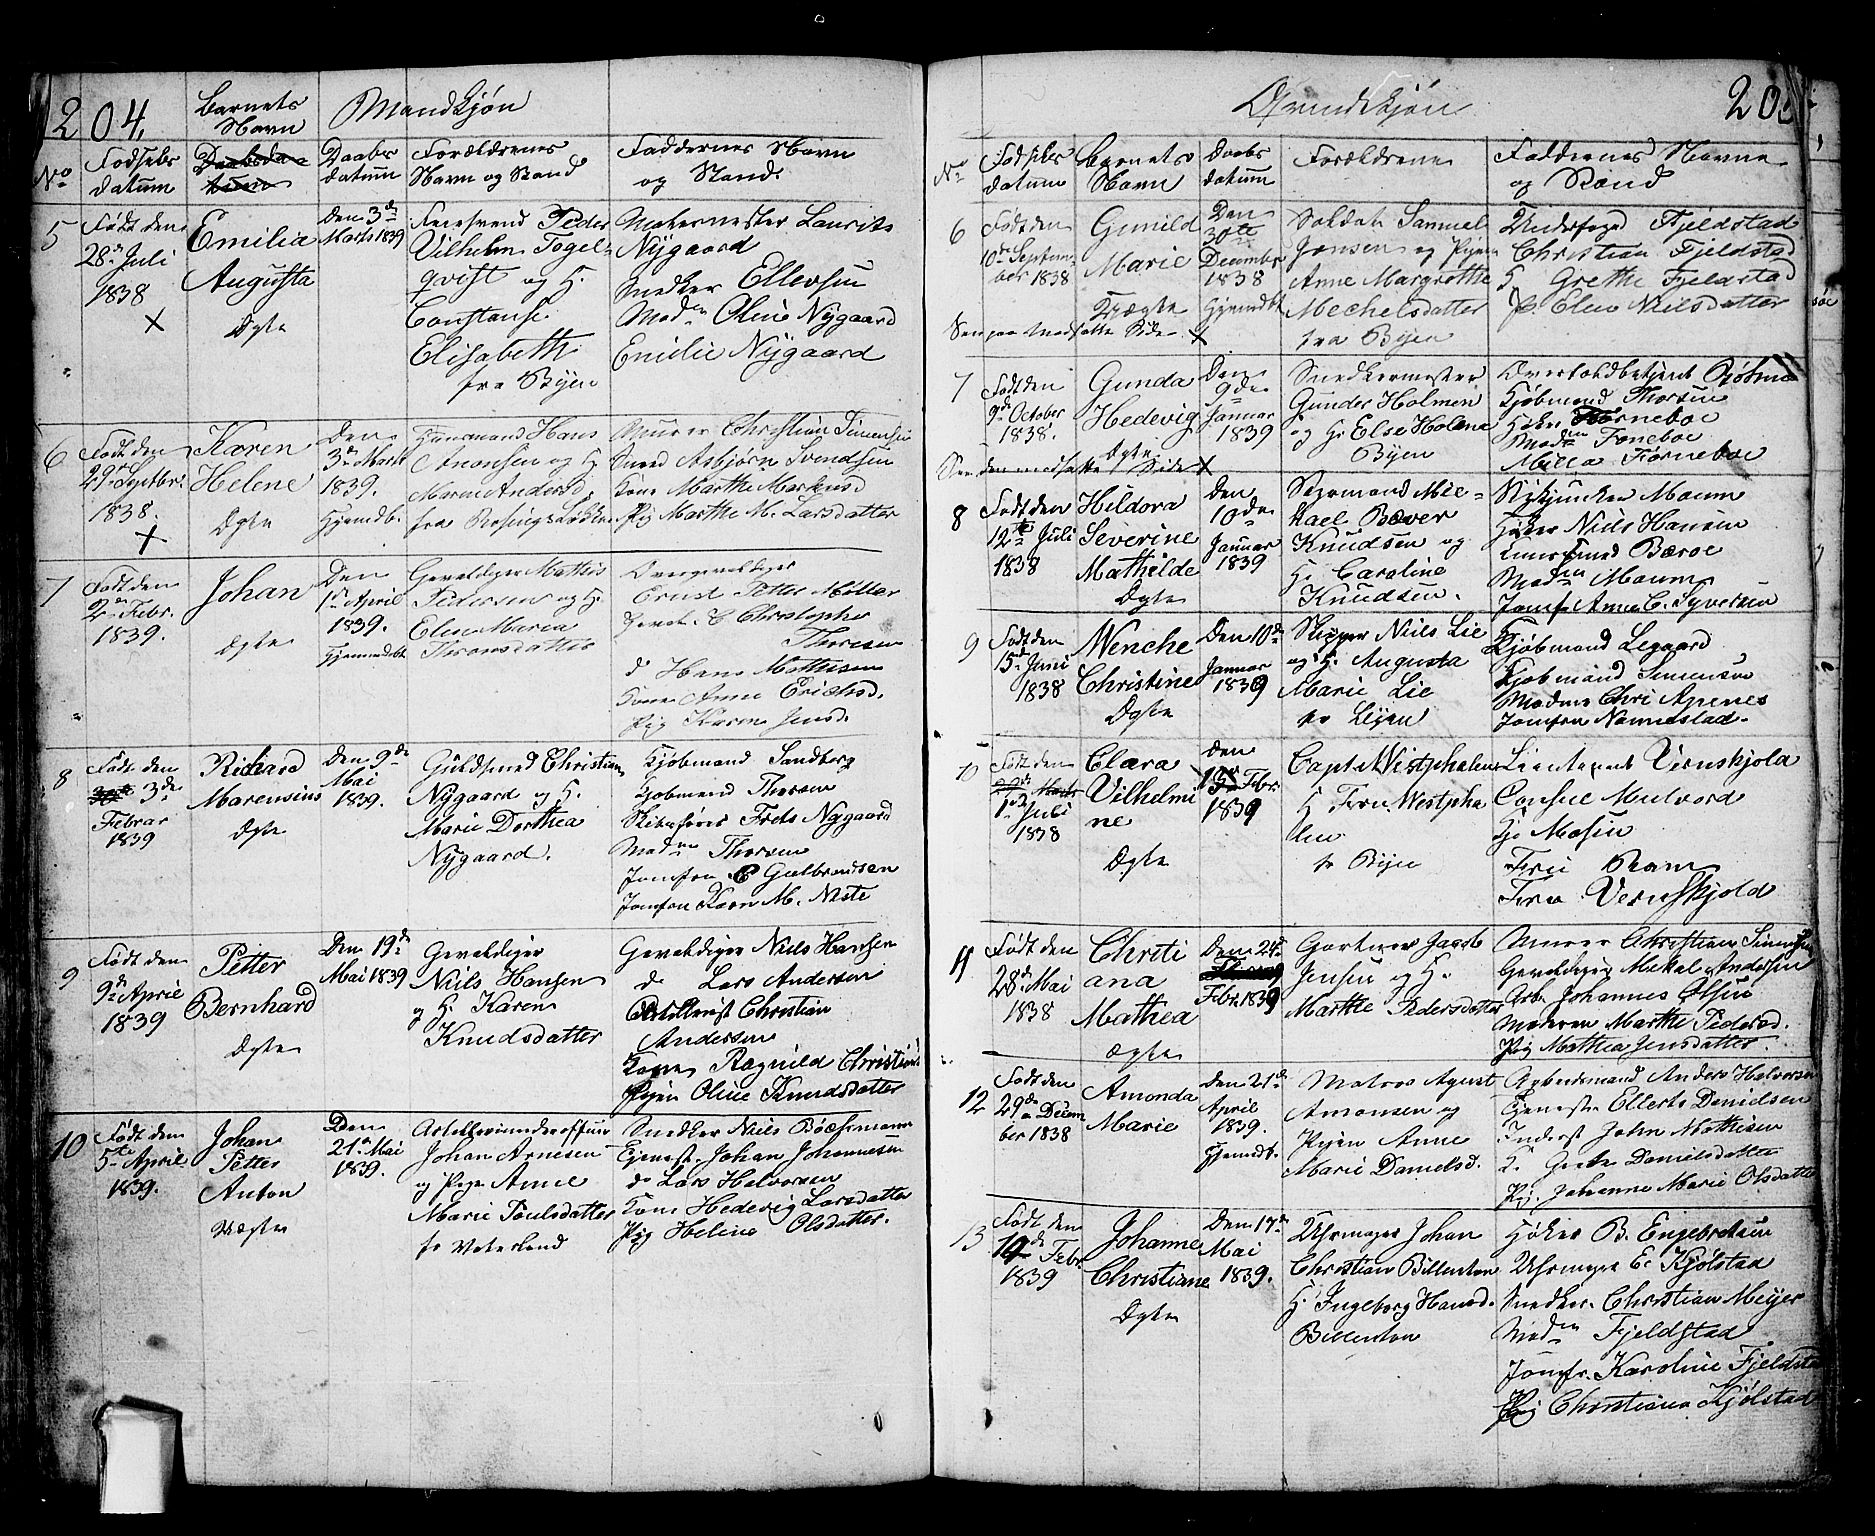 204.
Barnets
Navn
Mandkjøn
No
Fødsels
datum
Daabsda
tum
Daabs
datum
Forældrenes
Navn og Stand
Faddernes Navn
og Stand.
5
Født den
28de Juli
1838
X
Emilia
Augusta
Ægte
Den 3de
Marts 1839
Feiersvend Peder
Vilhelm Fogel-
qvist og H.
Constanse
Elisabeth
fra Byen
Malermester Laurits
Nygaard
Snedker Ellevsen
Maden Oline Nygaard
Emilie Nygaard
6
Født den
29de Septbr.
1838.
X
Karen
Helene
Ægte
Den
3de Marts
1839.
Hjemdb.
Huusmand Hans
Aronsen og H.
Maren Andersd.
fra
Murer Christian Simensen
Svend Asbjørn Svendsen
Kone Marthe Markusd
Pig Marthe M. Larsdatter
7
Født den
2den Febr.
1839.
Johan
Ægte
Den
1ste April
1839.
Hjemmedbt
Gevaldiger Mathis
Pedersen og H.
Elise Maria
Overgevaldiger
Ernst Petter Møller
Geval. C Christopher
Thoresen
do Hans Mathisen
Konen Anne Erichsd.
Pig Karen Jensd.
8
Født den
3de
Februar
1839
Richard
Marensius
Ægte
Den 9de
Mai
1839.
Guldsmed Christian
Nygaard og H.
Marie Dorthea
Nygaard.
Kjøbmand Sandberg
Kjøbmand Thorsen
Skibsfører Frets Nygaard
Maden Thorsen
Jomfru C Gulbrandsen
Jomfru Karn M. Neste
9
Født den
9de April
1839
Petter
Bernhard
Ægte
Den 19de
Mai 1839
Gevaldiger
Niels Hansen
og H. Karen
Knudsdatter
Gevaldiger Niels Hansen
do Lars Andersen
Artillerist Christian
Andersen
Konen Ragnild Christians
Pigen Oline Knudsdatter
10
Født den
5te April
1839.
Johan
Petter
Anton
Uægte
Den
21de Mai
1839.
Artelleriunderofficer
Johan Arnesen
og Pige Anne
Marie Poulsdatter
fr Vaterland
Snedker Niels Böchmann
Tjenest. Johan Johannesen
do Lars Halvorsen
Kone Hedevig Larsdatter
Pig Helene Olsdatter.
Qvindekjøn
205
No
Fødsels
datum
Barnets
Navn
Daabs
datum
Forældrene
Faddernes Navne
og Stand
6
Født den
10de Septem-
ber 1838
Gunild
Marie
Uægte
Den
30te
December
1838
Hjemdbt
Soldat Samuel
Jensen og Pigen
Anne Margrethe
Mechelsdatter
fra Byen
Underfoged Fjeldstad
Christian Fjeldstad
H Grethe Fjeldstad
P. Elen Nielsdatter
See paa modsatte Side. X
7
Født den
9de October
1838.
Gunda
Hedevig
Ægte
Den
9de
Januar
1839
Snedkermester
Gunder Holmen
og H. Else Holene
Byen
Overtoldbetjent Röhme
Kjøbmand Thorsen
Høker Forneboe
Maden Forneboe
Milla Forneboe
See den modsatte Side X
8
Født den
12te Juli
1838
Hildora
Severine
Mathilde
Ægte
Den
10de
Januar
1839
Styrmand Mic-
kael Bæver
Knudsen og
H. Caroline
Knudsen.
Maum
Høker Niels Hansen
Bæroe
Maden Maum
Jomfr Anne C. Syversen
9
Født den
15de Juni
1838
Wenche
Christine
Ægte
Den 10de
Januar
1839
Skipper Niels Lie
og H. Augusta
Marie Lie
fr Byen
Kjøbmand Legaard
Kjøbmand Simensen
Madme Chri Apenes
Jomfru Nannestad.
10
Født den
1ste Juli
1838
Clara
Vilhelmi
ne
Ægte
Den
13de Febr.
1839
Capt. Westphalen
H Fru Westpha
len
fr Byen
Lieutenant Vernskjold
Consul Mulvard
Hr Masin
Fru Ram
Fru Vernskjold
11
Født den
28de Mai
1838
Christi
ana
Mathea
Ægte
Den 24de
Febr. 1839
Gartner Jacob
Jensen og H.
Marthe Pedersdatter
Murer Christian Simensen
Gevaldiger Mikal Andersen
Arb. Johannes Olsen
Moderen Marthe Pedersd.
Pig Mathea Jensdatter.
12
Født den
29de Decem
ber 1838
Amonda
Marie
Den 21de
April
1839.
Hjemdbt.
Matros Agust
Amonsen og
Pigen Anne
Marie Danielsd.
Arbeidsmand Anders Halvorsen
Tjenestk. Ellert Danielsen
Inderst John Mathisen
K. Grete Danielsdatter
Pig. Johanne Marie Olsdatter
13
Født den
19de Febr.
1839
Johanne
Christiane
Ægte
Den 17de
Mai
1839.
Uhrmager Johan
Christian Billenton
H. Ingeborg Hansd.
Billenton
Høker B. Engebretsen
Uhrmager E. Kjølstad
Snedker Christian Meijer
Maden Fjeldstad
Jomfr. Karoline Fjeldstad
Pig Christiane Kjølstad